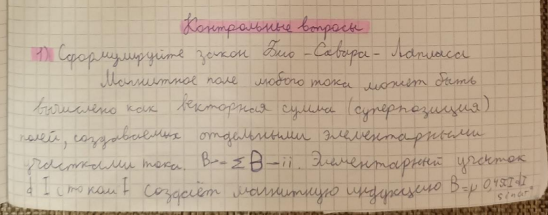 Контрольные вопросы
1) Сформулируйте закон Био-Савара-Лапласа
Магнитное поле любого тока может быть
вычислено как векторная сумма (суперпозиция)
полей, создаваемых отдельными элементарными
участками тока. B→=ΣB→ii. Элементарный участок
dI с током I создаёт магнитную индукцию B=μ